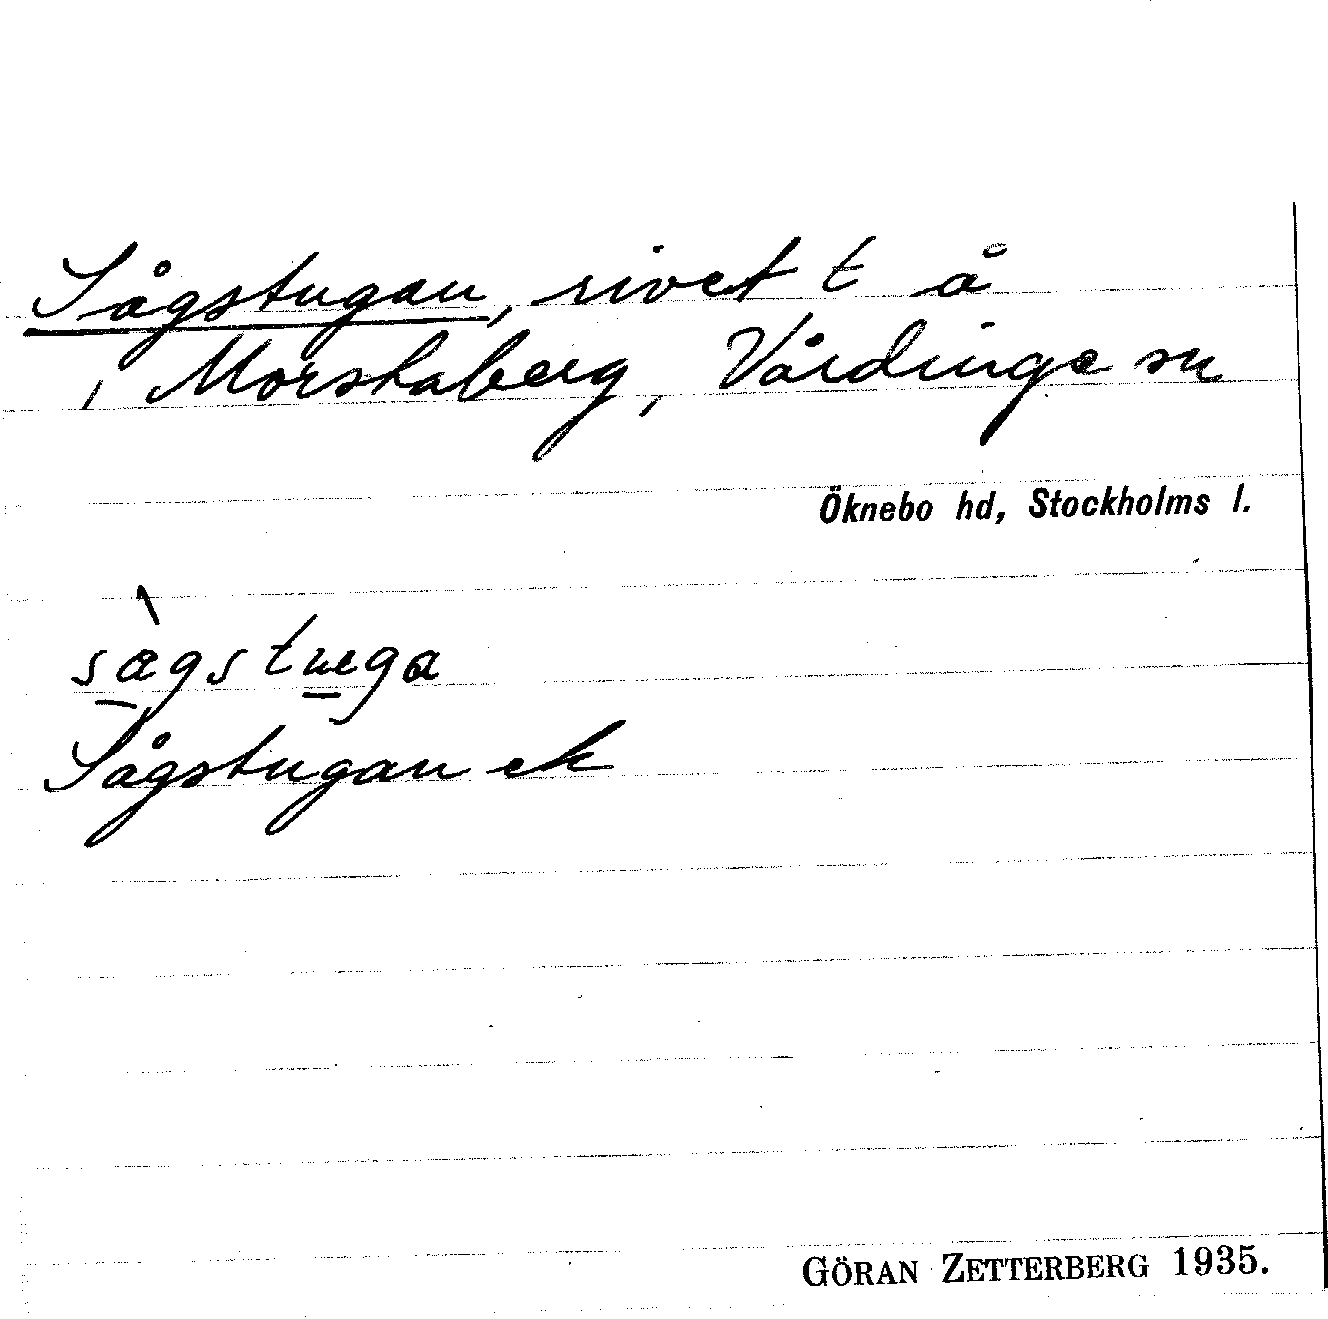 Sågstugan, rivet t å
, Morstaberg, Vårdinge sn
Öknebo hd, Stockholms l.
Sågstugan ek
GÖRAN ZETTERBERG 1935.